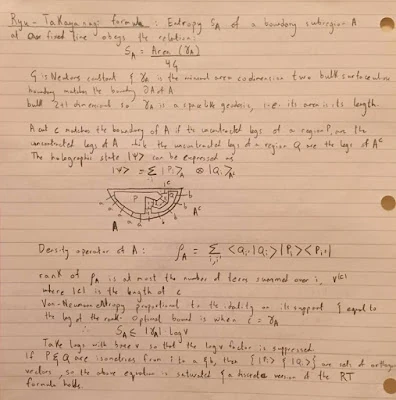 Ryu-Takayanagi formula: Entropy S_A of a boundary subregion A
at a fixed time obeys the relation:
S_A = Area (γ_A)
4G
G is Newtons constant & γ_A is the minimal area codimension two bulk surface whose
boundary matches the boundary ∂A of A
bulk 2+1 dimensional so γ_A is a spacelike geodesic, i.e. its area is its length.
A cut c matches the boundary of A if the uncontracted legs of a region P, are the
uncontracted legs of A while the uncontracted legs of a region Q are the legs of A^c
The holographic state |Ψ> can be expressed as
|Ψ> = Σ_i |P_i>_A ⊗ |Q_i>_A^c
c
P Q b
a
A A^c
Density operator of A: ρ_A = Σ_{i,i'} <Q_i'|Q_i>|P_i><P_i'|
rank of ρ_A is at most the number of terms summed over i, v^|c|
where |c| is the length of c
Von-Neumann entropy proportional to the identity on its support & equal to
the log of the rank. Optimal bound is when c = γ_A
∴ S_A ≤ |γ_A| · log v
Take logs with base v so that the log v factor is suppressed.
If P & Q are isometries from i to a & b, then {|P_i>} & {|Q_i>} are sets of orthogonal
vectors, so the above equation is saturated & a discrete version of the RT
formula holds.